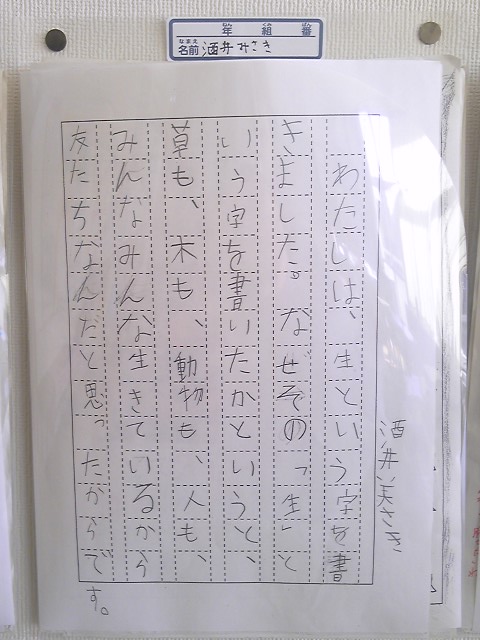 年 組 番
なまえ
名前 酒井みさき
酒井美さき
わたしは、生という字を書
きました。なぜその「生」と
いう字を書いたかというと、
草も、木も、動物も、人も、
みんなみんな生きているから
友たちなんだと思ったからで
す。